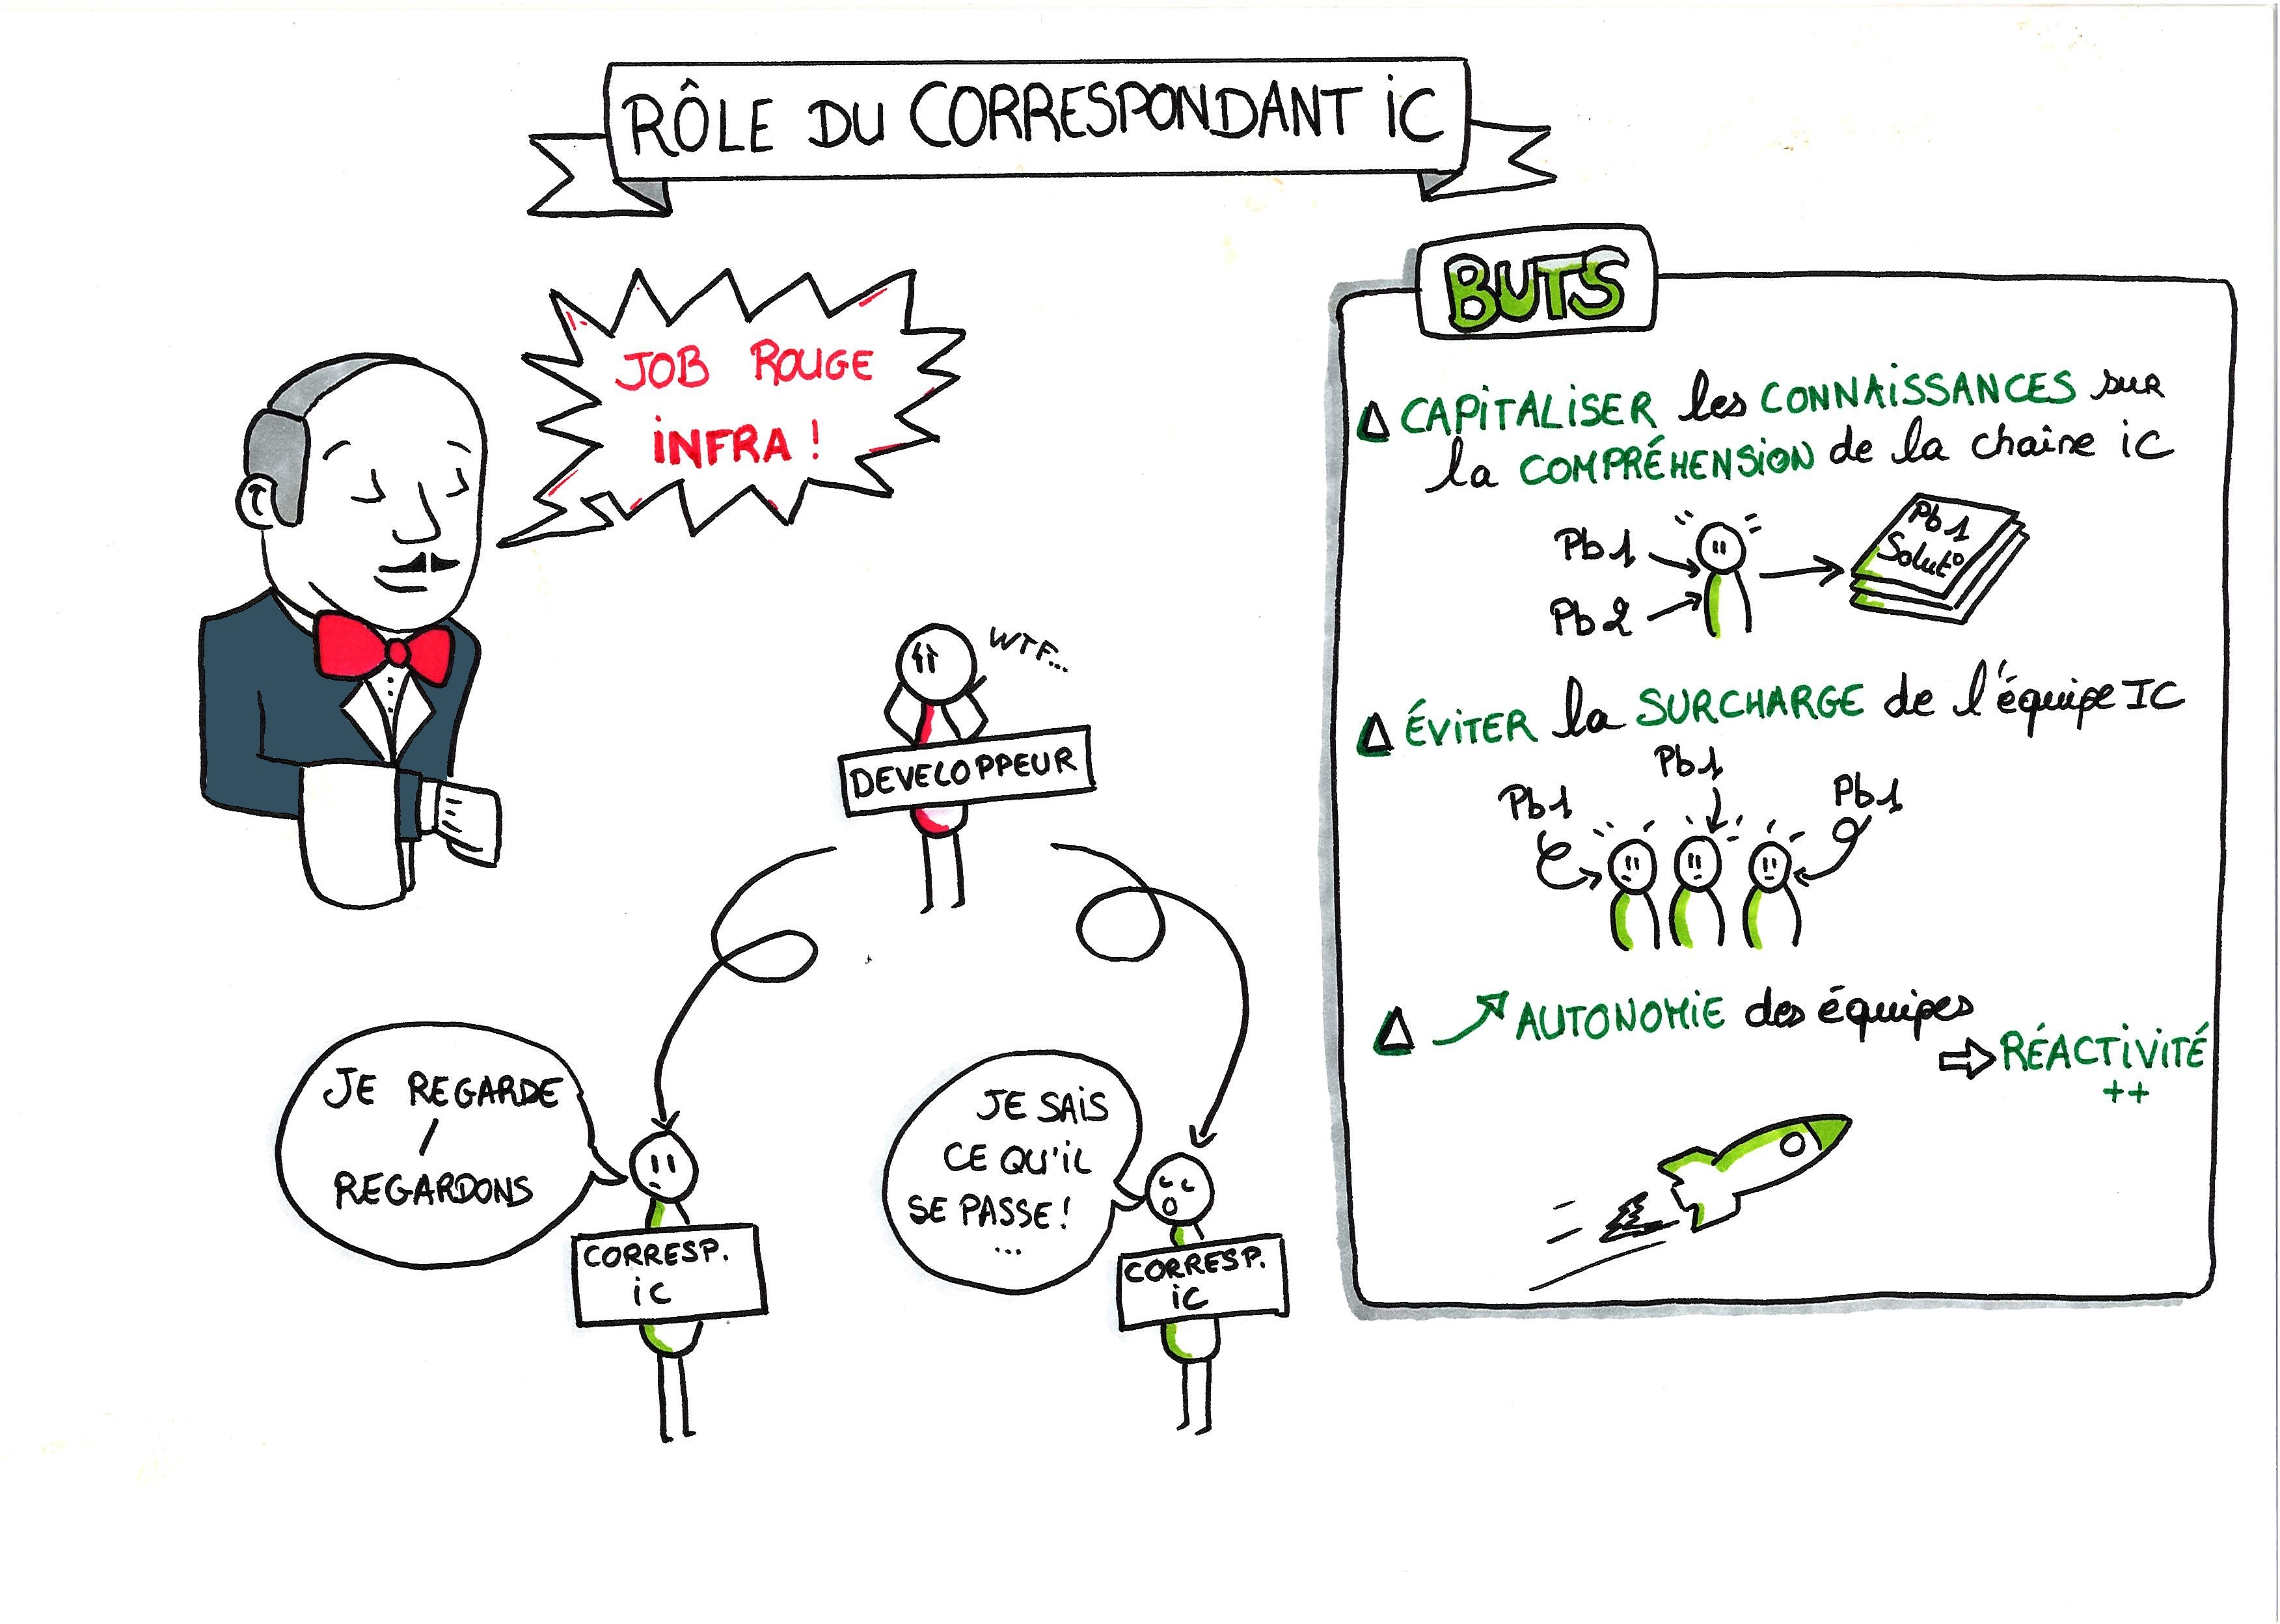 RÔLE DU CORRESPONDANT iC
JOB ROUGE
iNFRA !
WTF...
DEVELOPPEUR
JE REGARDE
/
REGARDONS
CORRESP.
iC
JE SAiS
CE QU'iL
SE PASSE !
...
CORRESP.
iC
BUTS
CAPiTALiSER les CONNAiSSANCES sur
la COMPRÉHENSiON de la chaîne iC
Pb1
Pb2
Pb1
Solut°
ÉViTER la SURCHARGE de l'équipe IC
Pb1
Pb1
Pb1
AUTONOMiE des équipes
⇨ RÉACTiViTÉ
++